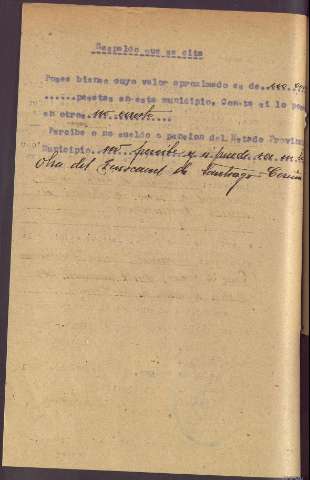 Respaldo que se cita
Posee bienes cuyo valor aproximado es de....
......pesetas en este municipio. Consta si lo pos
en otro. no consta....
Percibe o no sueldo o pension del Estado Provin
Municipio.. no percibe y
Obra del Ferrocarril de Santiago-Coruña